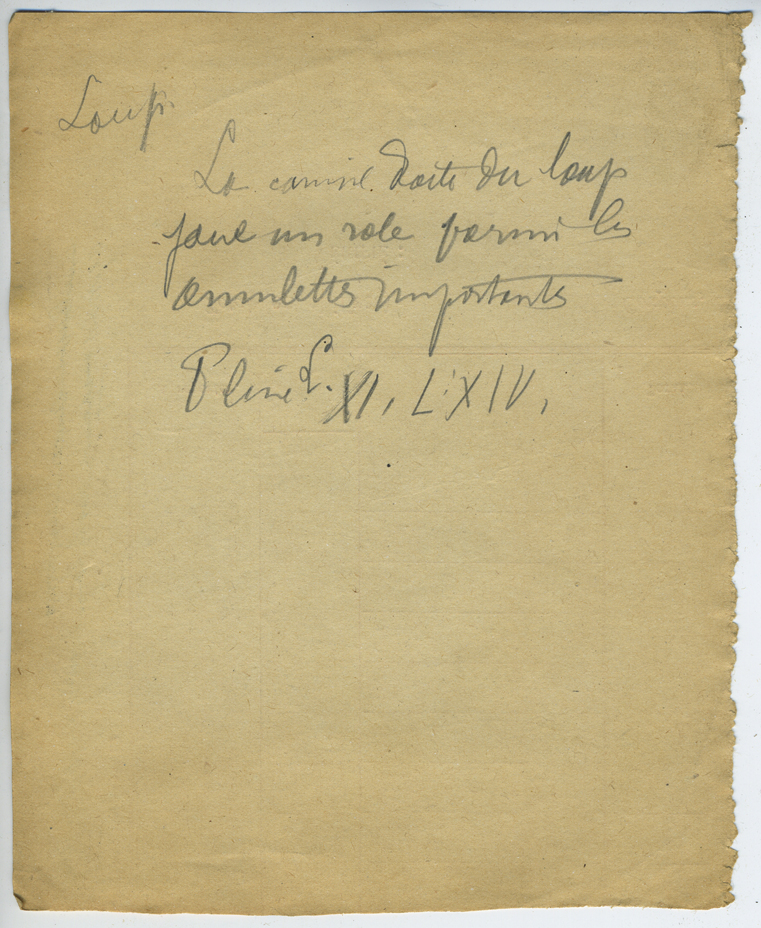 Loup.
La canine droite du loup
joue un role parmi les
amulettes importantes
Pline L. XI, LXIV,